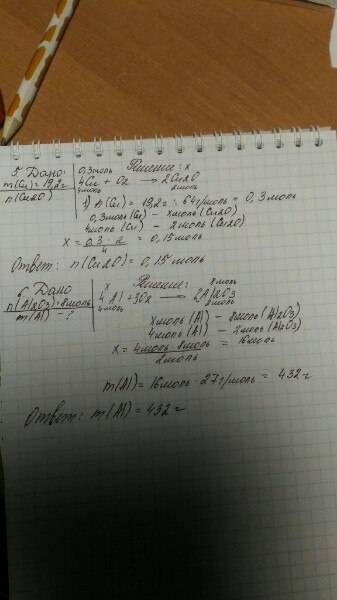 5 Дано: Решение:
m(Cu)=19,2г 0,3моль x
n(Cu2O) 4Cu + O2 → 2Cu2O
4моль 2моль
1) n(Cu) = 19,2г : 64г/моль = 0,3моль
0,3моль(Cu) – xмоль(Cu2O)
4моль(Cu) – 2моль(Cu2O)
x = 0,3 · 2 / 4 = 0,15моль
Ответ: n(Cu2O) = 0,15 моль
6 Дано Решение:
n(Al2O3)=8моль x 8моль
m(Al) – ? 4Al + 3O2 → 2Al2O3
4моль 2моль
xмоль(Al) – 8моль(Al2O3)
4моль(Al) – 2моль(Al2O3)
x = 4моль · 8моль / 2моль = 16моль
m(Al) = 16моль · 27г/моль = 432г
Ответ: m(Al) = 432г